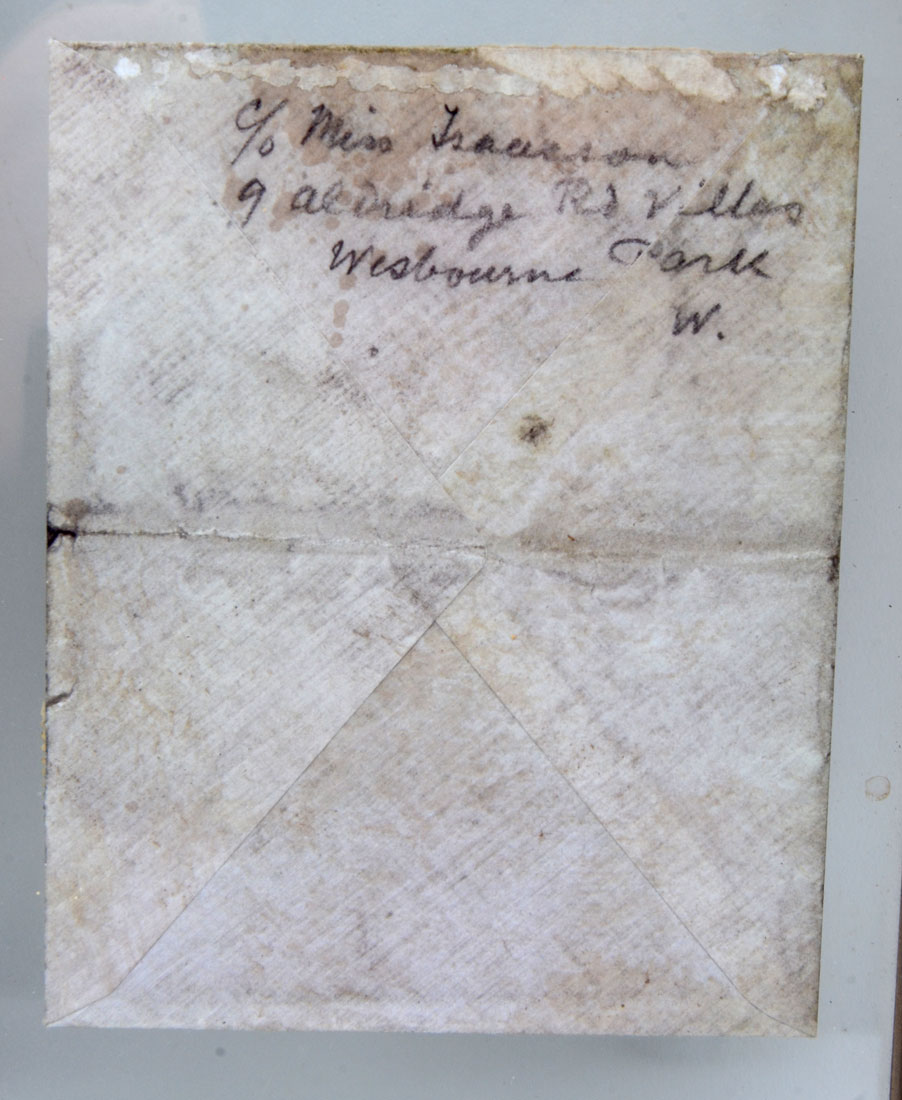 c/o Miss Isaacson
9 Aldridge Rd Villas
Wesbourne Park
W.